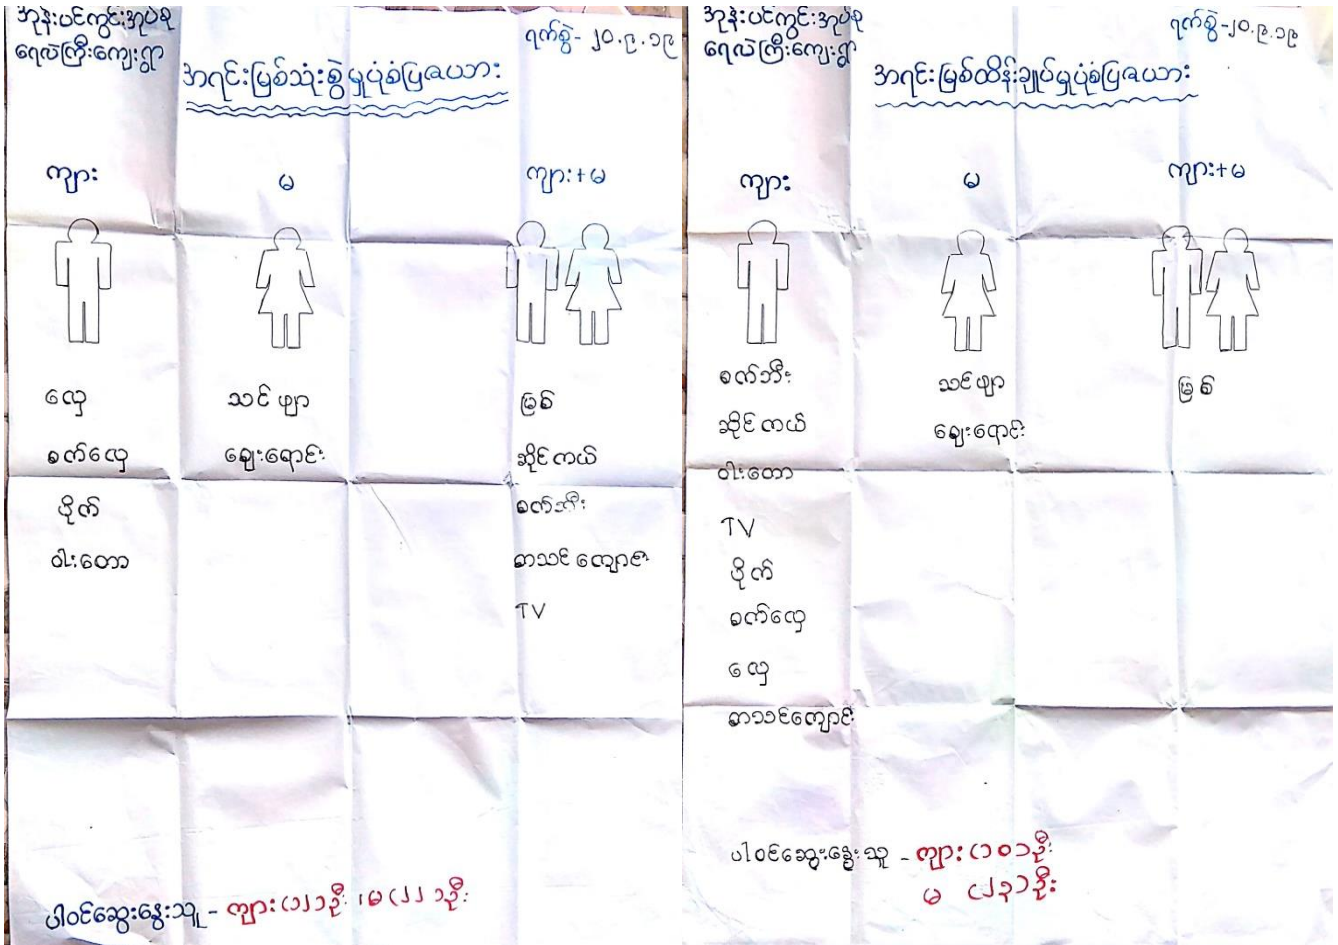 အုန်းပင်ကွင်းအုပ်စု
ရေလဲကြီးကျေးရွာ
ရက်စွဲ- ၂၀.၉.၁၉
အရင်းမြစ်သုံးစွဲမှုပုံစံပြဇယား
ကျား
မ
ကျား+မ
လှေ
စက်လှေ
ပိုက်
ဝါးတော
သင်ဖျာ
ဈေးရောင်း
မြစ်
ဆိုင်ကယ်
စက်ဘီး
စာသင်ကျောင်း
TV
ပါဝင်ဆွေးနွေးသူ - ကျား (၁၂)ဦး ၊ မ (၂၂)ဦး
အုန်းပင်ကွင်းအုပ်စု
ရေလဲကြီးကျေးရွာ
ရက်စွဲ-၂၀.၉.၁၉
အရင်းမြစ်ထိန်းချုပ်မှုပုံစံပြဇယား
ကျား
မ
ကျား+မ
စက်ဘီး
ဆိုင်ကယ်
ဝါးတော
TV
ပိုက်
စက်လှေ
လှေ
စာသင်ကျောင်း
သင်ဖျာ
ဈေးရောင်း
မြစ်
ပါဝင်ဆွေးနွေးသူ - ကျား (၁၀)ဦး
မ (၂၃)ဦး